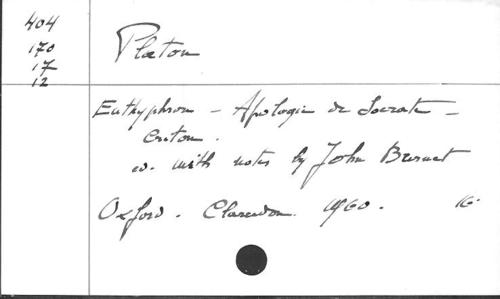 404
170
17
12
Platon
Euthyphron - Apologie de Socrate -
Criton.
ed. with notes by John Burnet
Oxford. Clarendon. 1960. 16.